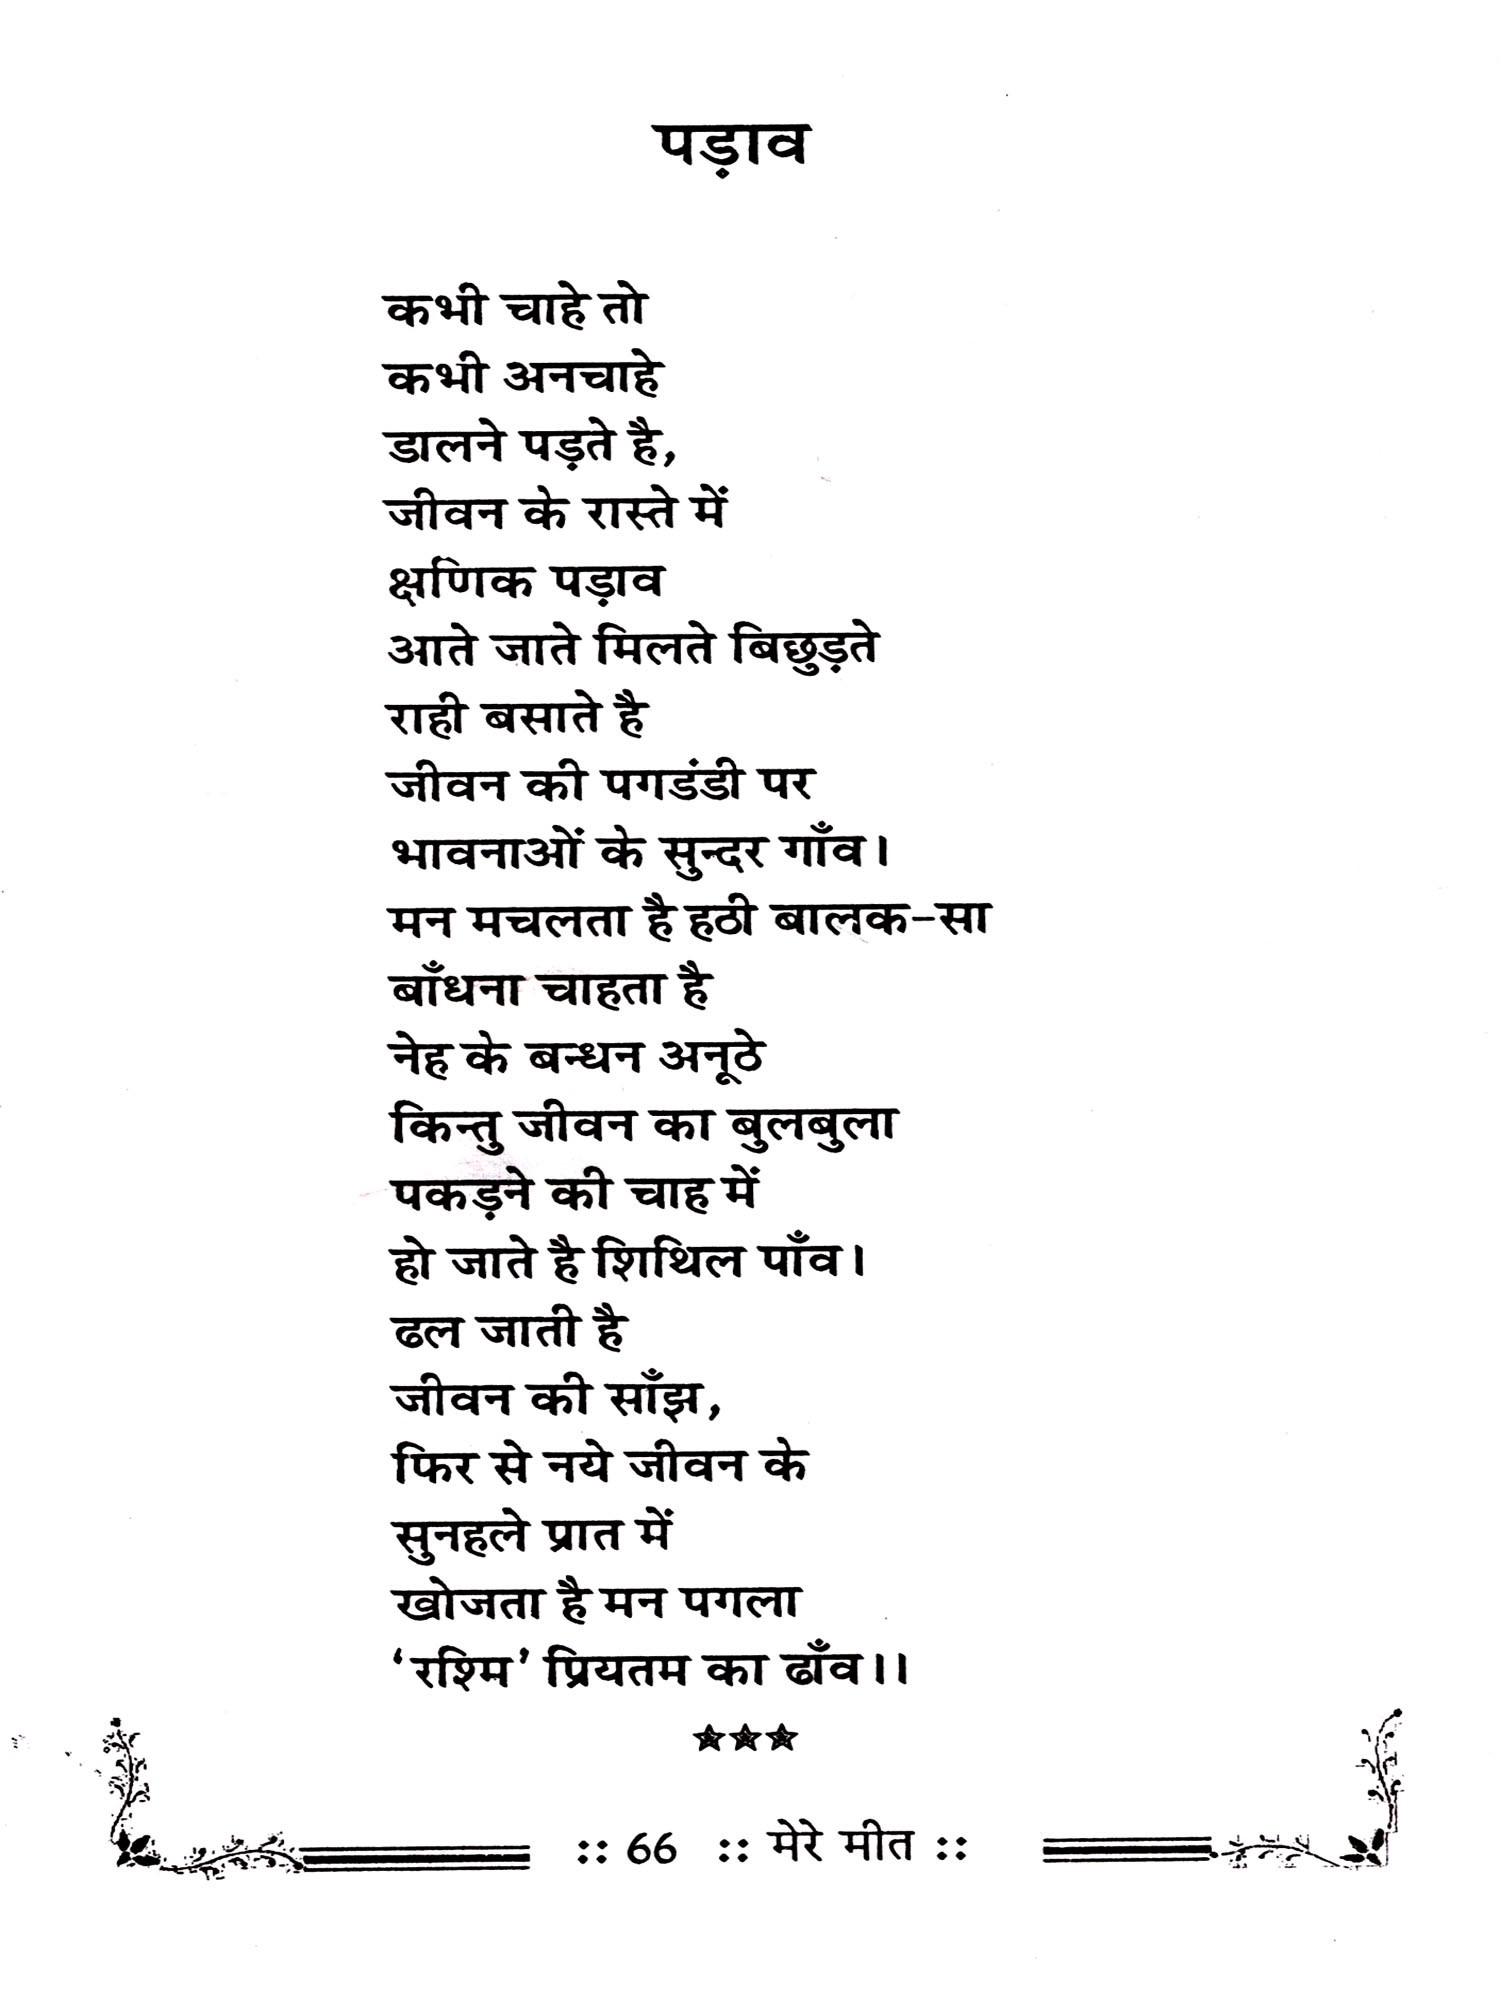 पड़ाव
कभी चाहे तो
कभी अनचाहे
डालने पड़ते है,
जीवन के रास्ते में
क्षणिक पड़ाव
आते जाते मिलते बिछुड़ते
राही बसाते है
जीवन की पगडंडी पर
भावनाओं के सुन्दर गाँव।
मन मचलता है हठी बालक-सा
बाँधना चाहता है
नेह के बन्धन अनूठे
किन्तु जीवन का बुलबुला
पकड़ने की चाह में
हो जाते है शिथिल पाँव।
ढल जाती है
जीवन की साँझ,
फिर से नये जीवन के
सुनहले प्रात में
खोजता है मन पगला
‘रश्मि’ प्रियतम का ढाँव।।
:: 66 :: मेरे मीत ::